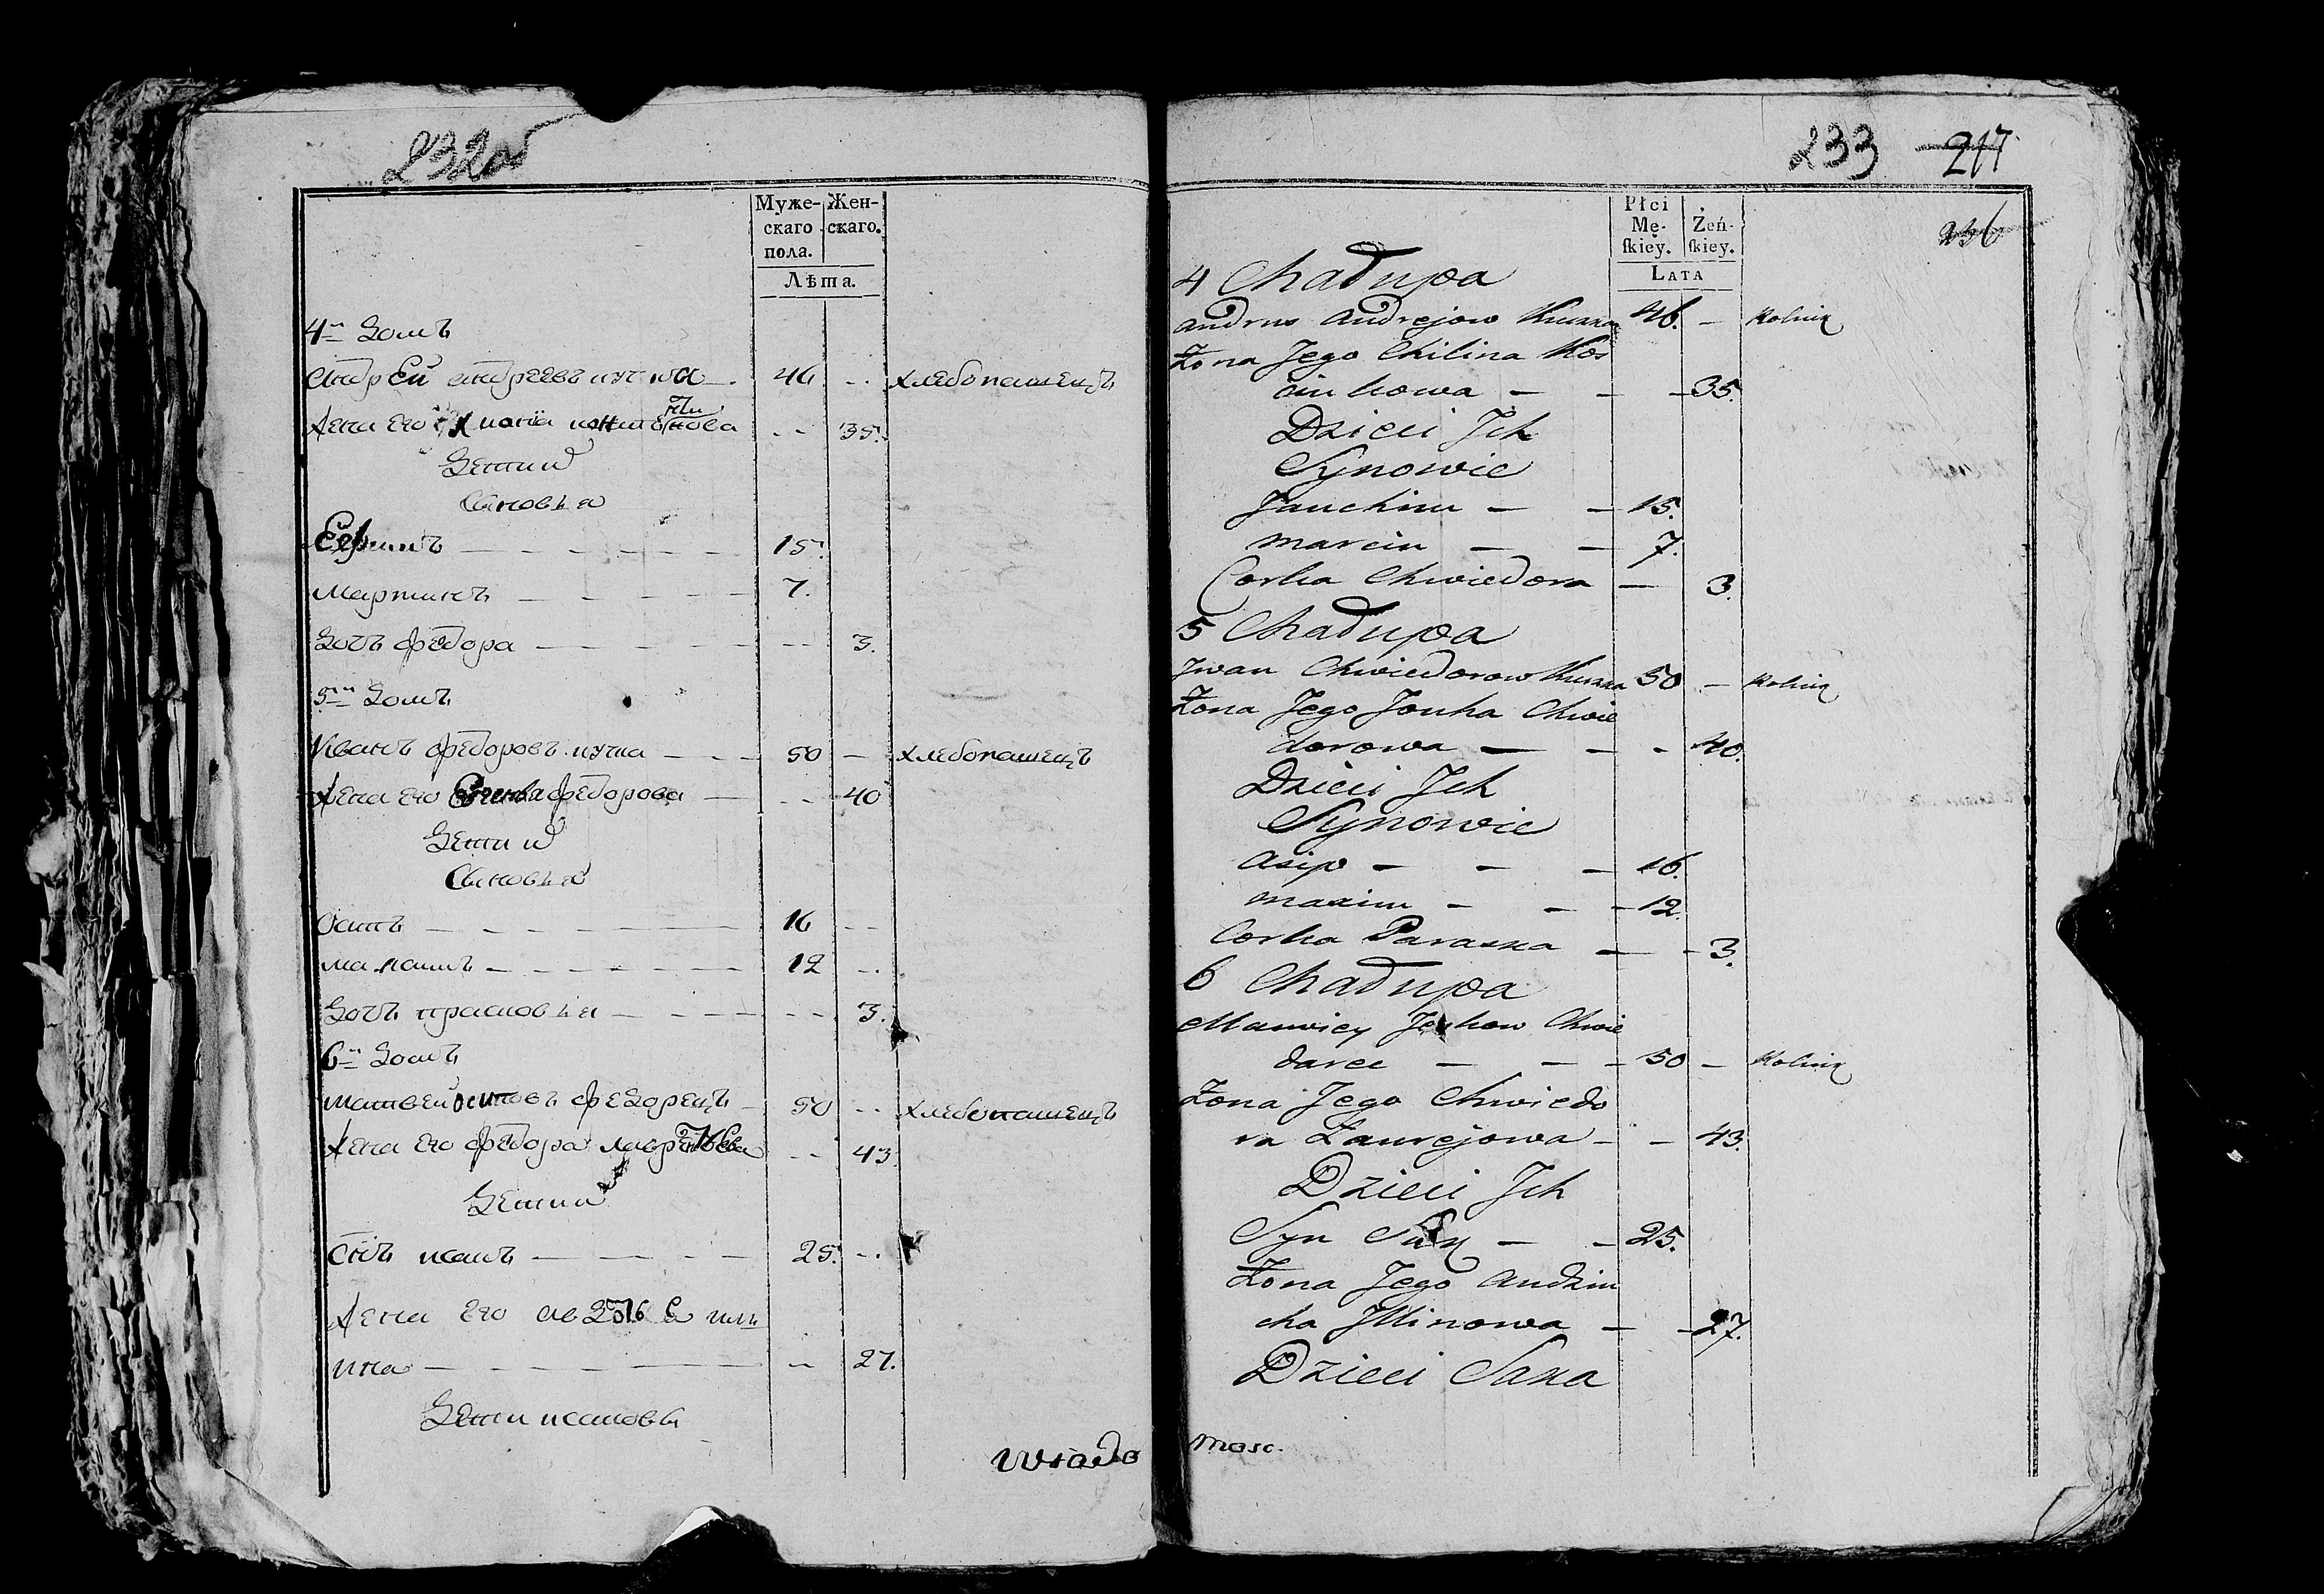 232об
Муже-
скаго
пола.
Жен-
скаго.
Лѣта.
4й Домъ
Андрей Андреевъ кучка 46 хлебопашецъ
Жена его 35.
Дети
Сыновья
Ефимъ 15.
Мартинъ 7.
Дочь Федора 3.
5й Домъ
Иванъ Федоровъ кучка 50 хлебопашецъ
Жена его Федорова 40
Дети
Сыновья
Осипъ 16
Максимъ 12
Дочь Прасковья 3.
6й Домъ
Матвей Осиповъ Федорецъ 50 хлебопашецъ
Жена его Федора 43
Дети
Сынъ Исакъ 25.
Жена его
ина 27.
Дети Исаковы
Wiado
233 217
236
Płci
Mę-
ſkiey.
Żeń-
ſkiey.
Lata
4 Chadupa
Andrus Andrejow Kuczka 46. — Rolnik
Żona Jego Chilina Kos
cinkowa — — 35.
Dzieci Jch
Synowie
Jauchim — — 15.
Marcin — — 7.
Corka Chwiedora — 3.
5 Chadupa
Jwan Chwiedorow Kuczka 50 — Rolnik
Żona Jego Jouha Chwie
dorowa — — 40.
Dzieci Jch
Synowie
Asip — — — 16.
Maxim — — 12.
Corka Paraska — — 3.
6 Chadupa
Mauwiey Chwie
darec — — — 50 — Rolnik
Żona Jego Chwiedo
ra Łaurejowa — — 43.
Dzieci Jch
Syn Sak — — 25.
Żona Jego Audziu
cha Jllinowa — — 27.
Dzieci Saka
Mosc.